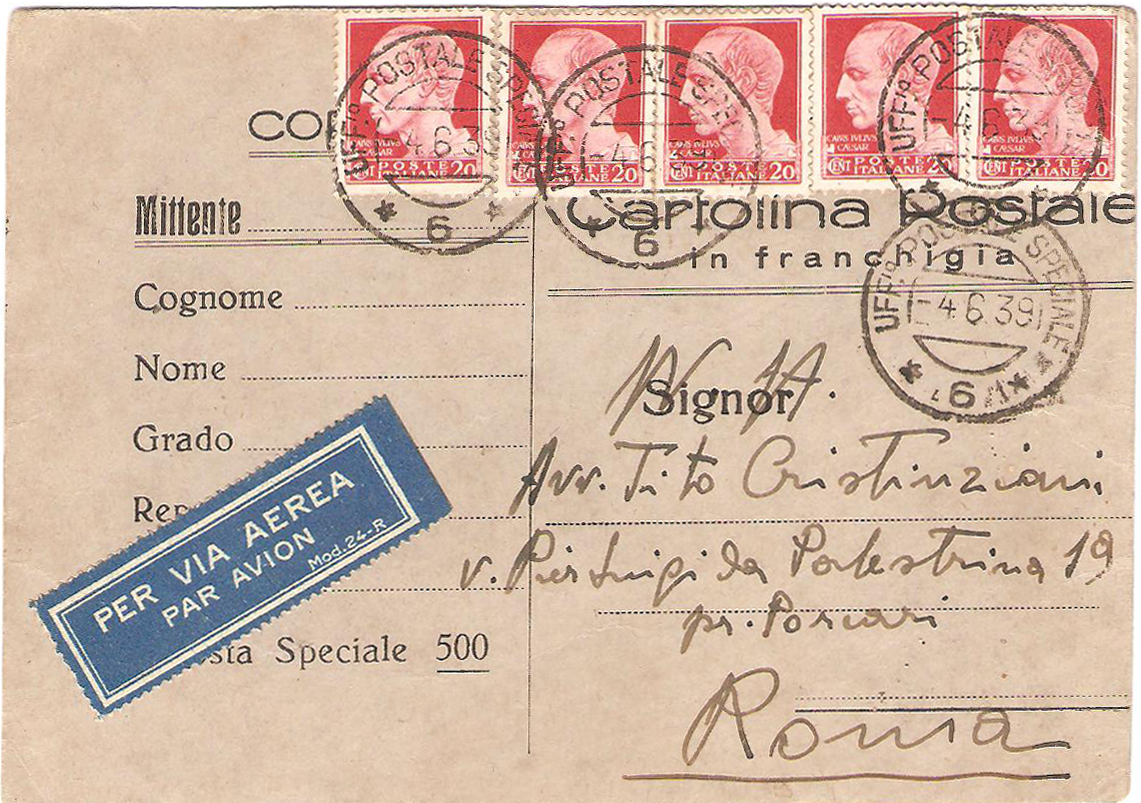 CAIVS IVLIVS
CAESAR
CENT POSTE ITALIANE 20
CAIVS IVLIVS
CAESAR
CENT POSTE ITALIANE 20
CENT POSTE ITALIANE 20
CAIVS IVLIVS
CAESAR
CENT POSTE ITALIANE 20
CAIVS IVLIVS
CAESAR
CENT POSTE ITALIANE 20
UFFIO POSTALE SPECIALE
-4.6.39
6
POSTALE SPECIALE
-4.6.39
6
UFFIO POSTALE
-4.6.39
UFFIO POSTALE SPECIALE
-4.6.39
6
Cartolina Postale
in franchigia
Mittente
Cognome
Nome
Grado
Speciale 500
PER VIA AEREA
PAR AVION
Mod.24-R
Signor
Avv. Tito Cristinziani
v. Pierluigi da Palestrina 19
pr. Porcari
Roma